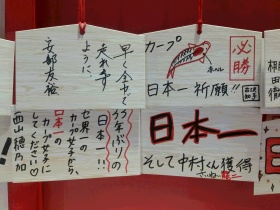 早く今やって
走れます
ように、
安部友裕
カープ
必勝
日本一祈願!!
33年ぶりの
日本一!!
世界一の
カープ女子から、
日本一の
カープ女子に
してください♡
西山穂乃加
日本一
そして中村くん獲得